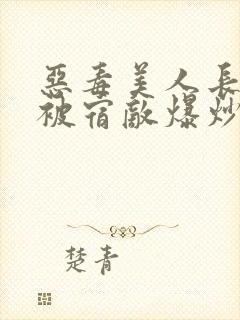 惡毒美人長
被宿敵爆炒
楚青